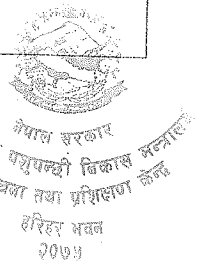 नेपाल सरकार
पशुपन्छी विकास मन्त्रालय
तथा प्रशिक्षण केन्द्र
हरिहर भवन
२०७५